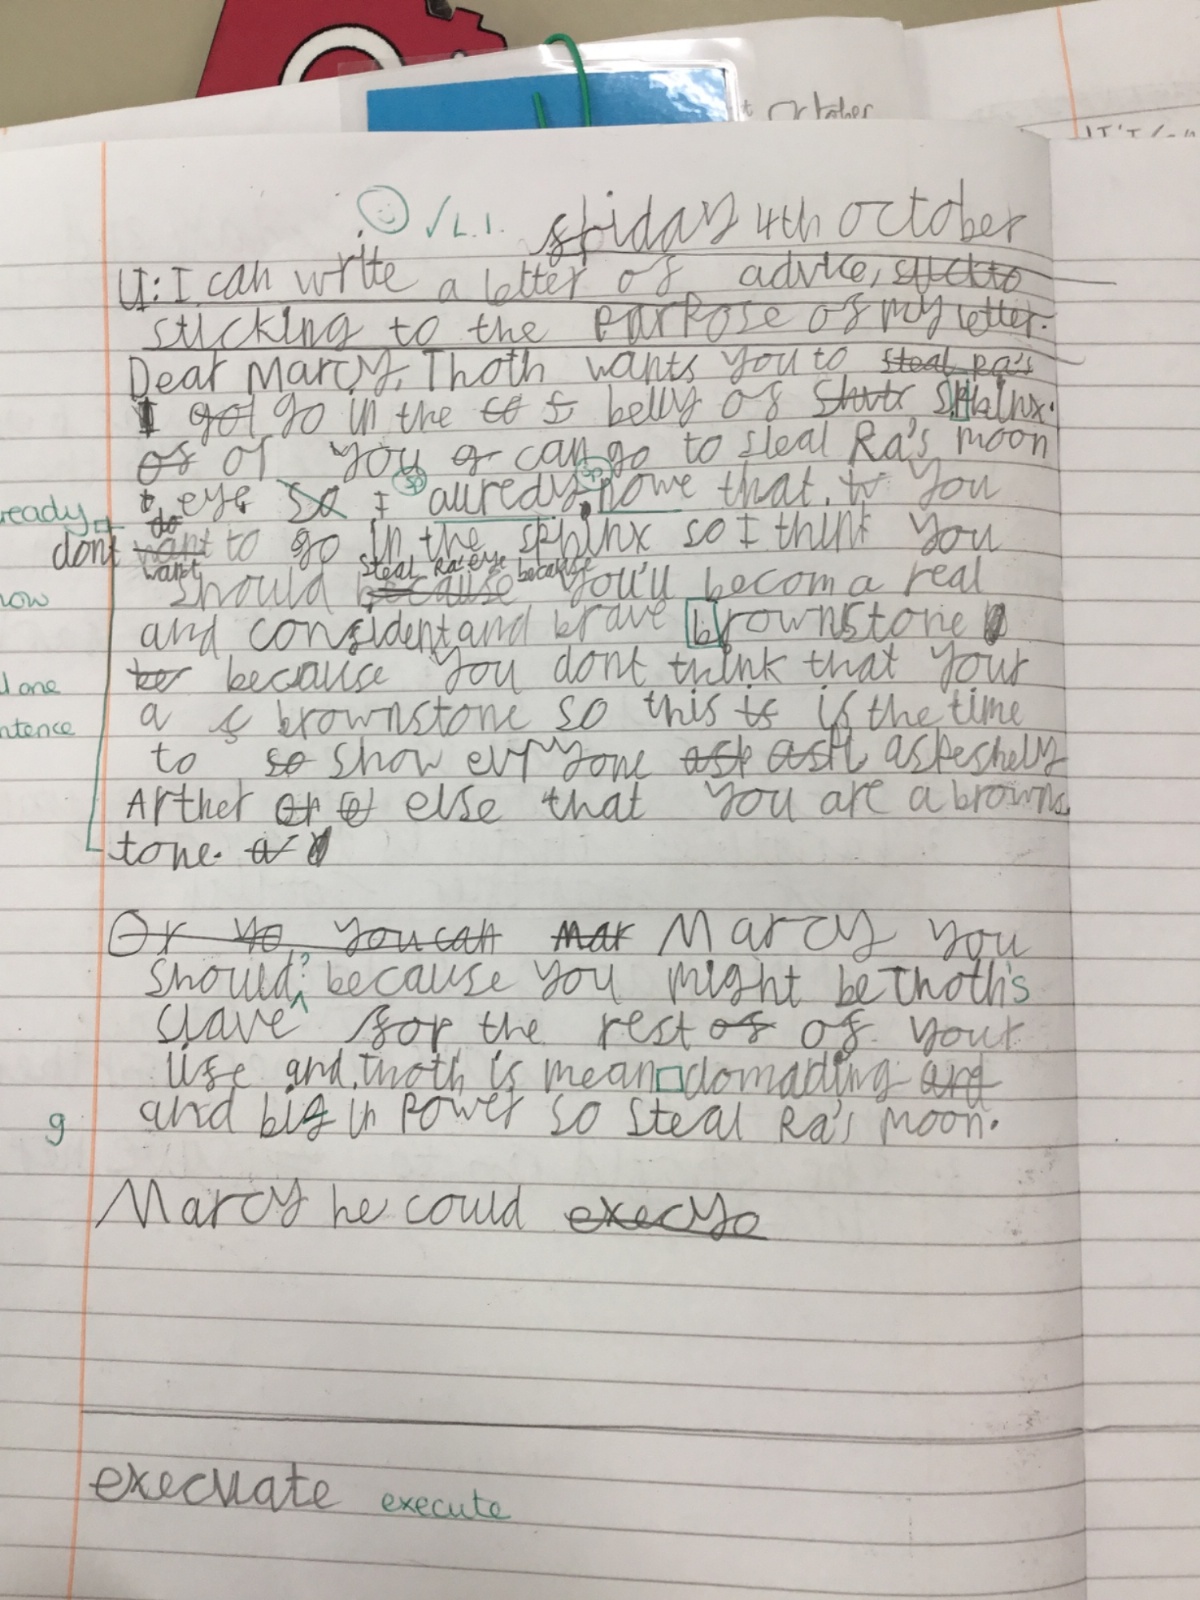 October
√L.I. friday 4th october
LI: I can write a letter of advice, stick to
sticking to the Parpose of my letter.
Dear Marcy, Thoth wants you to steal Ra's
I got go in the belly of Sphinx.
of or you can go to steal Ra's moon
eye so I auredy nowe that you
ready
do
dont want to go in the sphinx so I think you
want steal Ra's eye because
should because you'll becom a real
now
and confident and brave brownstone
because you dont think that your
one
a brownstone so this is is the time
ntence
to so show evryone ask aspeshely
Arther or else that you are a browns
tone.
Or yo you can Mar Marcy you
should, because you might be Thoth's
slave for the rest of of your
life and thoth is mean domading and
and big in Power so steal Ra's moon.
g
Marcy he could execyo
execuate execute